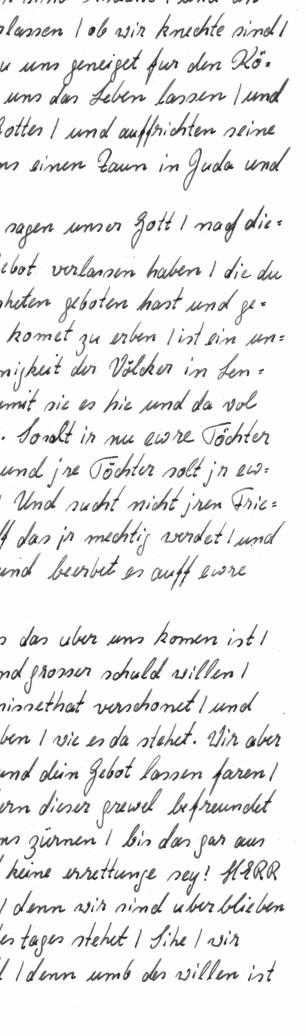 lassen / ob wir knechte sind /
u uns geneiget fur den Kö=
uns das Leben lassen / und
Gottes / und auffrichten seine
ns einen Zaun in Juda und
sagen unser Gott / nach die=
ebot verlassen haben / die du
heten geboten hast und ge=
komet zu erben / ist ein un=
nigkeit der Völcker in Len=
mit sie es hie und da vol
. So solt ir nu ewre Töchter
und jre Töchter solt jr ew=
Und sucht nicht jren Frie=
ff das jr mechtig werdet / und
und beerbet es auff ewre
s das uber uns komen ist /
nd grosser schuld willen /
missethat verschonet / und
ben / wie es da stehet. Wir aber
und dein Gebot lassen faren /
ern dieser grewel befreundet
ns zürnen / bis das gar aus
keine errettunge sey! HERR
/ denn wir sind uberblieben
es tages stehet / Sihe / wir
/ denn umb des willen ist